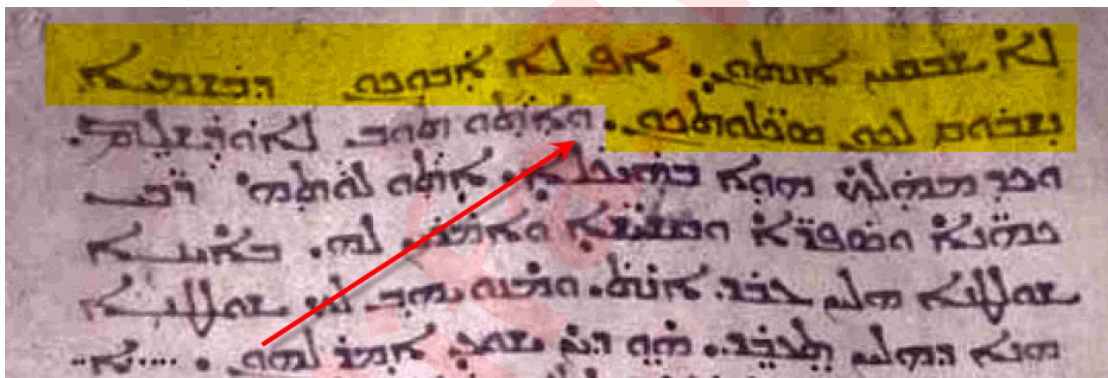 ܠܐ ܫܒܩܝܢ ܐܢܬܘܢ. ܐܦ ܠܐ ܐܒܘܟܘܢ ܕܒܫܡܝܐ
ܢܫܒܘܩ ܠܟܘܢ ܣܟܠܘܬܟܘܢ. ܘܐܬܘ ܬܘܒ ܠܐܘܪܫܠܡ.
ܘܟܕ ܡܗܠܟ ܗܘܐ ܒܗܝܟܠܐ. ܐܬܘ ܠܘܬܗ ܪܒܝ
ܟܗܢܐ ܘܣܦܪܐ ܘܩܫܝܫܐ ܘܐܡܪܝܢ ܠܗ. ܒܐܝܢܐ
ܫܘܠܛܢܐ ܗܠܝܢ ܥܒܕ ܐܢܬ. ܘܡܢܘ ܝܗܒ ܠܟ ܫܘܠܛܢܐ
ܗܢܐ ܕܗܠܝܢ ܬܥܒܕ. ܗܘ ܕܝܢ ܝܫܘܥ ܐܡܪ ܠܗܘܢ.